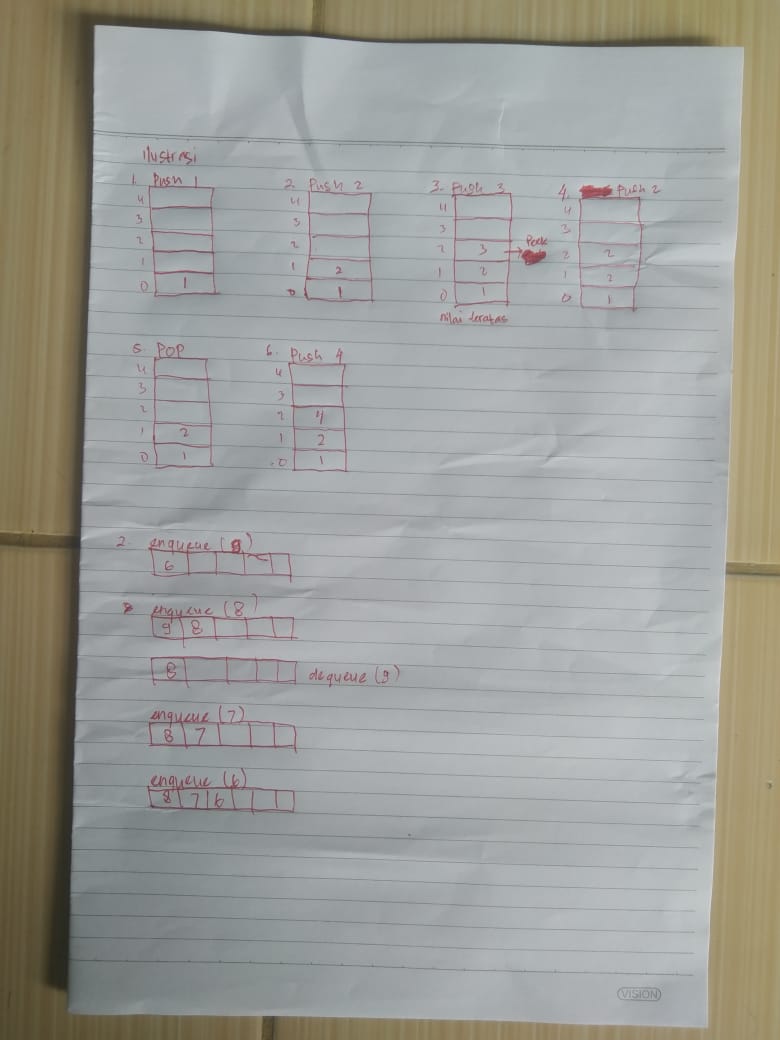 ilustrasi
1. Push 1
4
3
2
1
0 1
2. Push 2
4
3
2
1 2
0 1
3. Push 3
4
3
2 3 → Peek
1 2
0 1
nilai teratas
4. Push 2
4
3
2 2
1 2
0 1
5. POP
4
3
2
1 2
0 1
6. Push 4
4
3
2 4
1 2
0 1
2. enqueue (9)
6
enqueue (8)
9 8
8 dequeue (9)
enqueue (7)
8 7
enqueue (6)
8 7 6
VISION